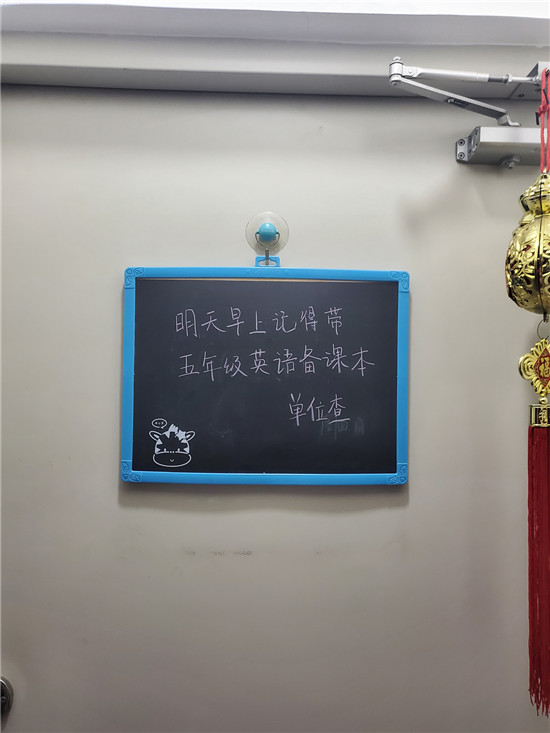 明天早上记得带
五年级英语备课本
单位查